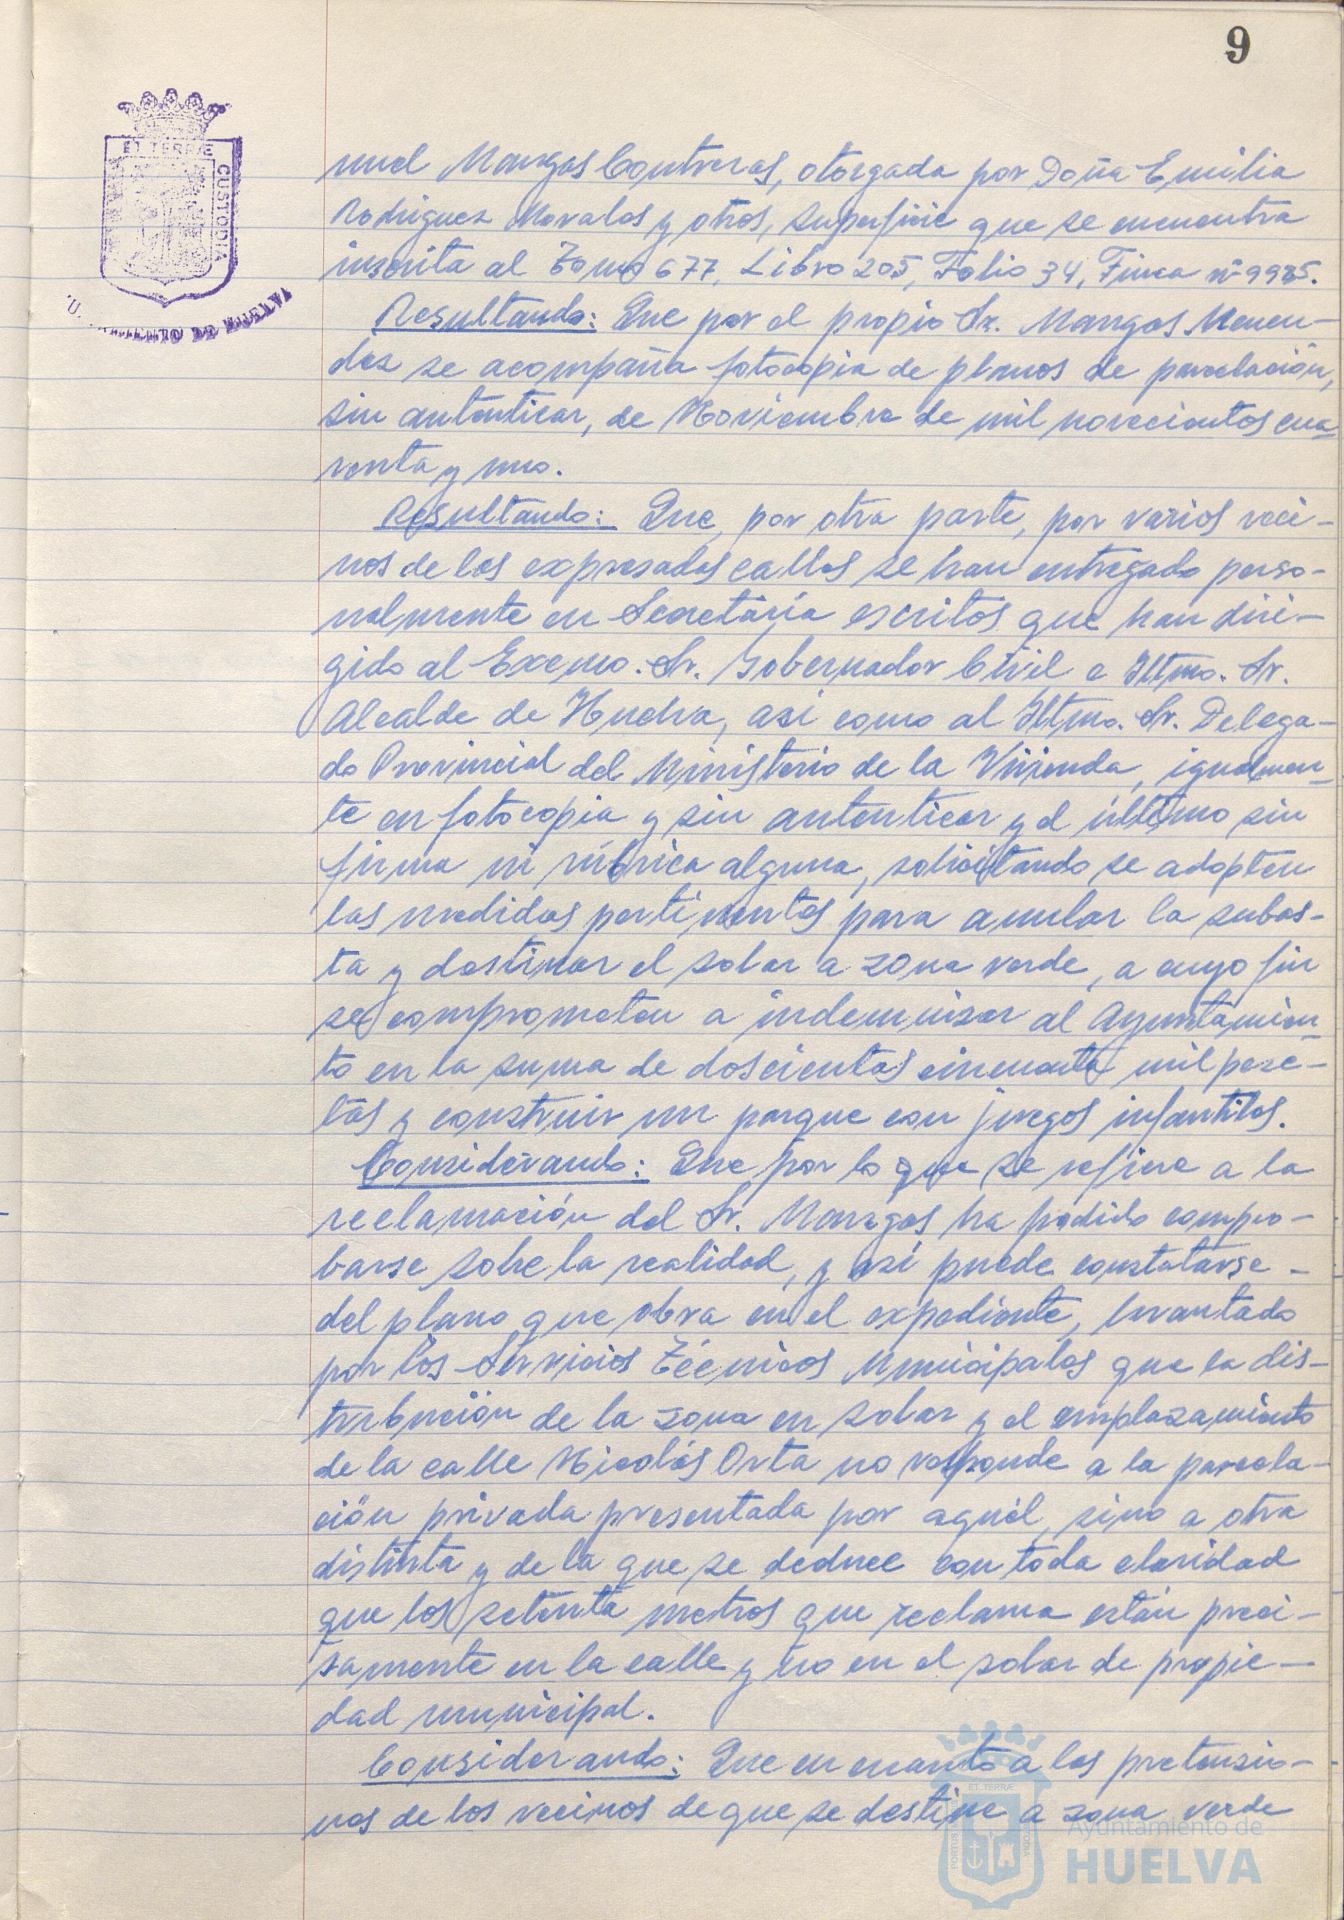 9
ET TERRÆ
CUSTODIA
nuel Mangas Contreras, otorgada por Doña Emilia
Rodriguez Morales y otros, superficie que se encuentra
inscrita al Tomo 677, Libro 205, Folio 34, Finca nº 9985.
Resultando: Que por el propio Sr. Mangas Menen-
dez se acompaña fotocopia de planos de parcelación,
sin autenticar, de Noviembre de mil novecientos cua-
renta y uno.
Resultando: Que, por otra parte, por varios veci-
nos de las expresadas calles se han entregado perso-
nalmente en Secretaría escritos que han diri-
gido al Excmo. Sr. Gobernador Civil e Iltmo. Sr.
Alcalde de Huelva, asi como al Iltmo. Sr. Delega-
do Provincial del Ministerio de la Vivienda, igualmen-
te en fotocopia y sin autenticar y el último sin
firma ni rúbrica alguna, solicitando se adopten
las medidas pertinentes para anular la subas-
ta y destinar el solar a zona verde, a cuyo fin
se comprometen a indemnizar al Ayuntamien-
to en la suma de doscientas cincuenta mil pese-
tas y construir un parque con juegos infantiles.
Considerando: Que, por lo que se refiere a la
reclamación del Sr. Mangas ha podido compro-
barse sobre la realidad, y así puede constatarse -
del plano que obra en el expediente, levantado
por los Servicios Técnicos Municipales que la dis-
tribución de la zona en solar y el emplazamiento
de la calle Nicolás Orta no responde a la parcela-
ción privada presentada por aquél, sino a otra
distinta y de la que se deduce con toda claridad
que los setenta metros que reclama están preci-
samente en la calle y no en el solar de propie-
dad municipal.
Considerando: Que en cuanto a las pretensio-
nes de los vecinos de que se destine a zona verde
Ayuntamiento de
HUELVA